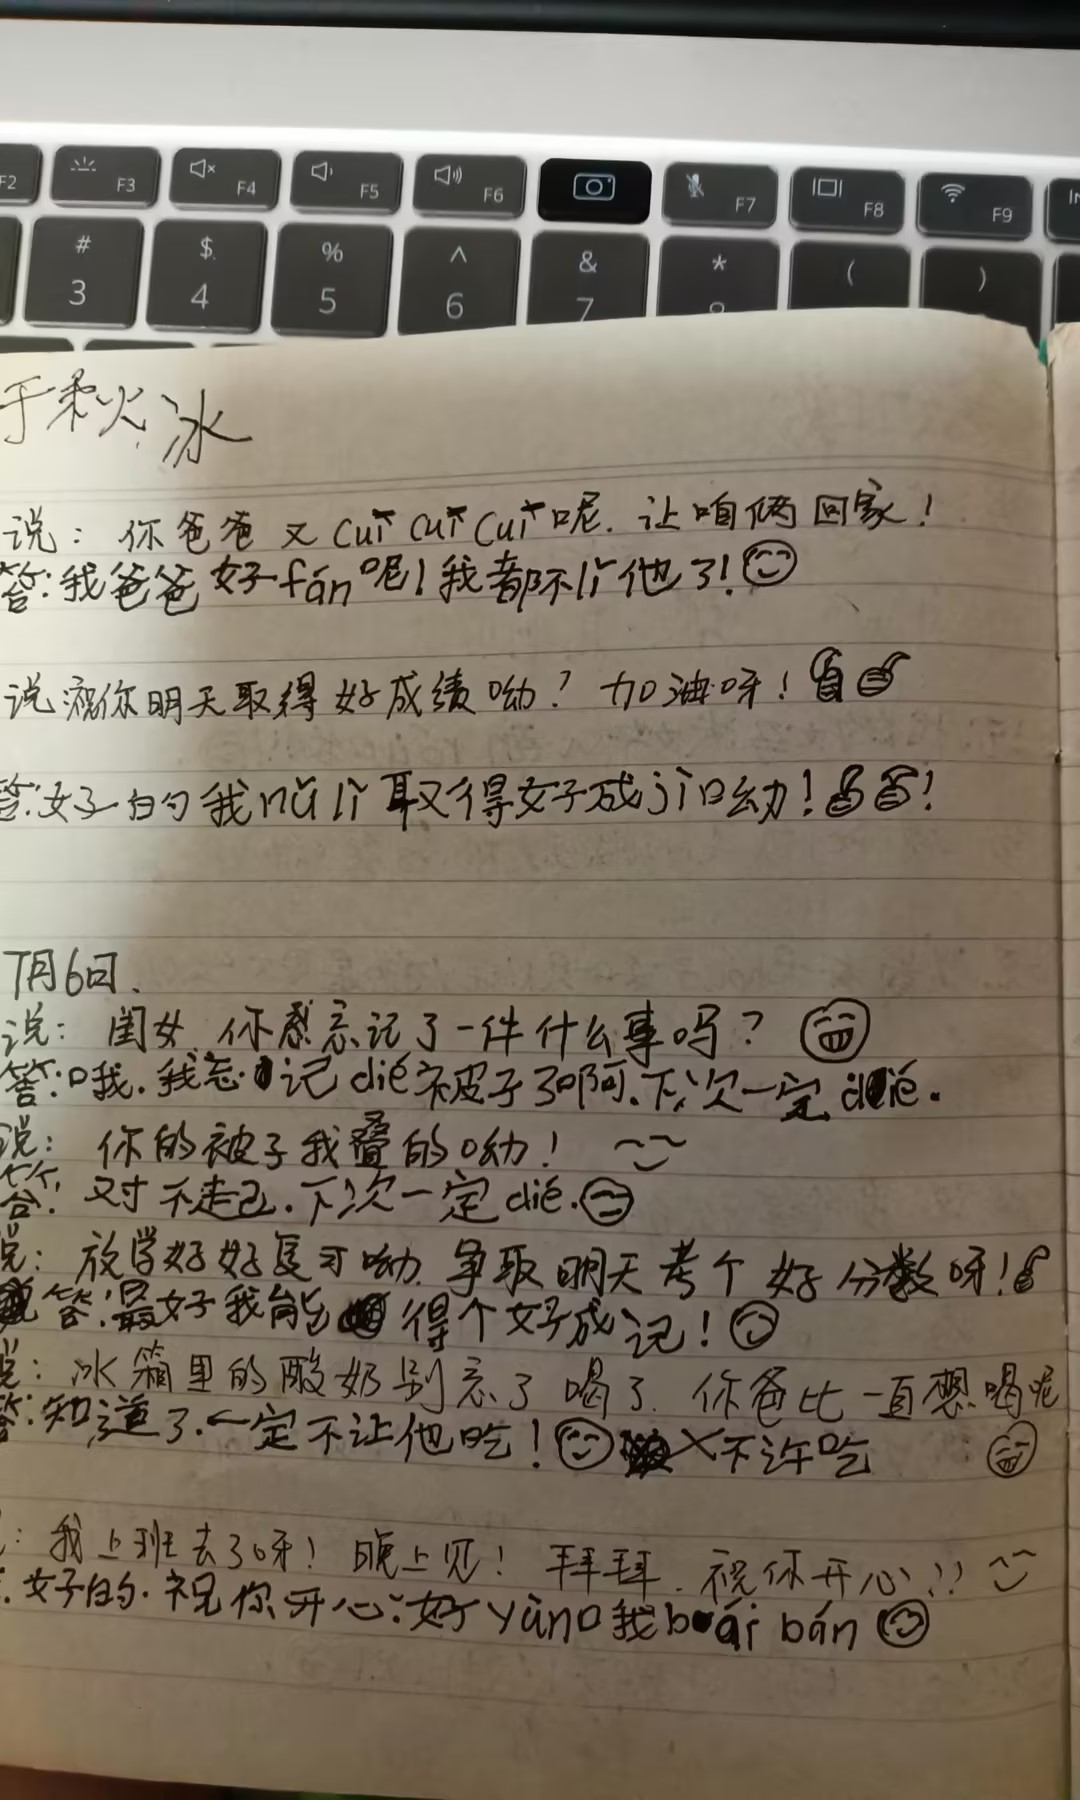 F2 F3 F4 F5 F6 F7 F8 F9
# $ % ^ & * ( )
3 4 5 6 7
于秋冰
说：你爸爸又cuī cuī cuī呢.让咱俩回家！
答：我爸爸好fán呢！我都不lǐ他了！
说祝你明天取得好成绩呦？加油呀！
答：好的我nǔ lì取得好成jì呦！！
7月6日.
说：闺女,你感忘记了一件什么事吗？
答：哦.我忘记dié被子了啊.下次一定dié.
说：你的被子我叠的呦！
答：对不起.下次一定dié.
说：放学好好复习呦.争取明天考个好分数呀！
答：最好我能得个好成记！
说：冰箱里的酸奶别忘了喝了.你爸比一直想喝呢
答：知道了.一定不让他吃！×不许吃
：我上班去了呀！晚上见！拜拜.祝你开心！！
：好的.祝你开心：好yàng我bái bán